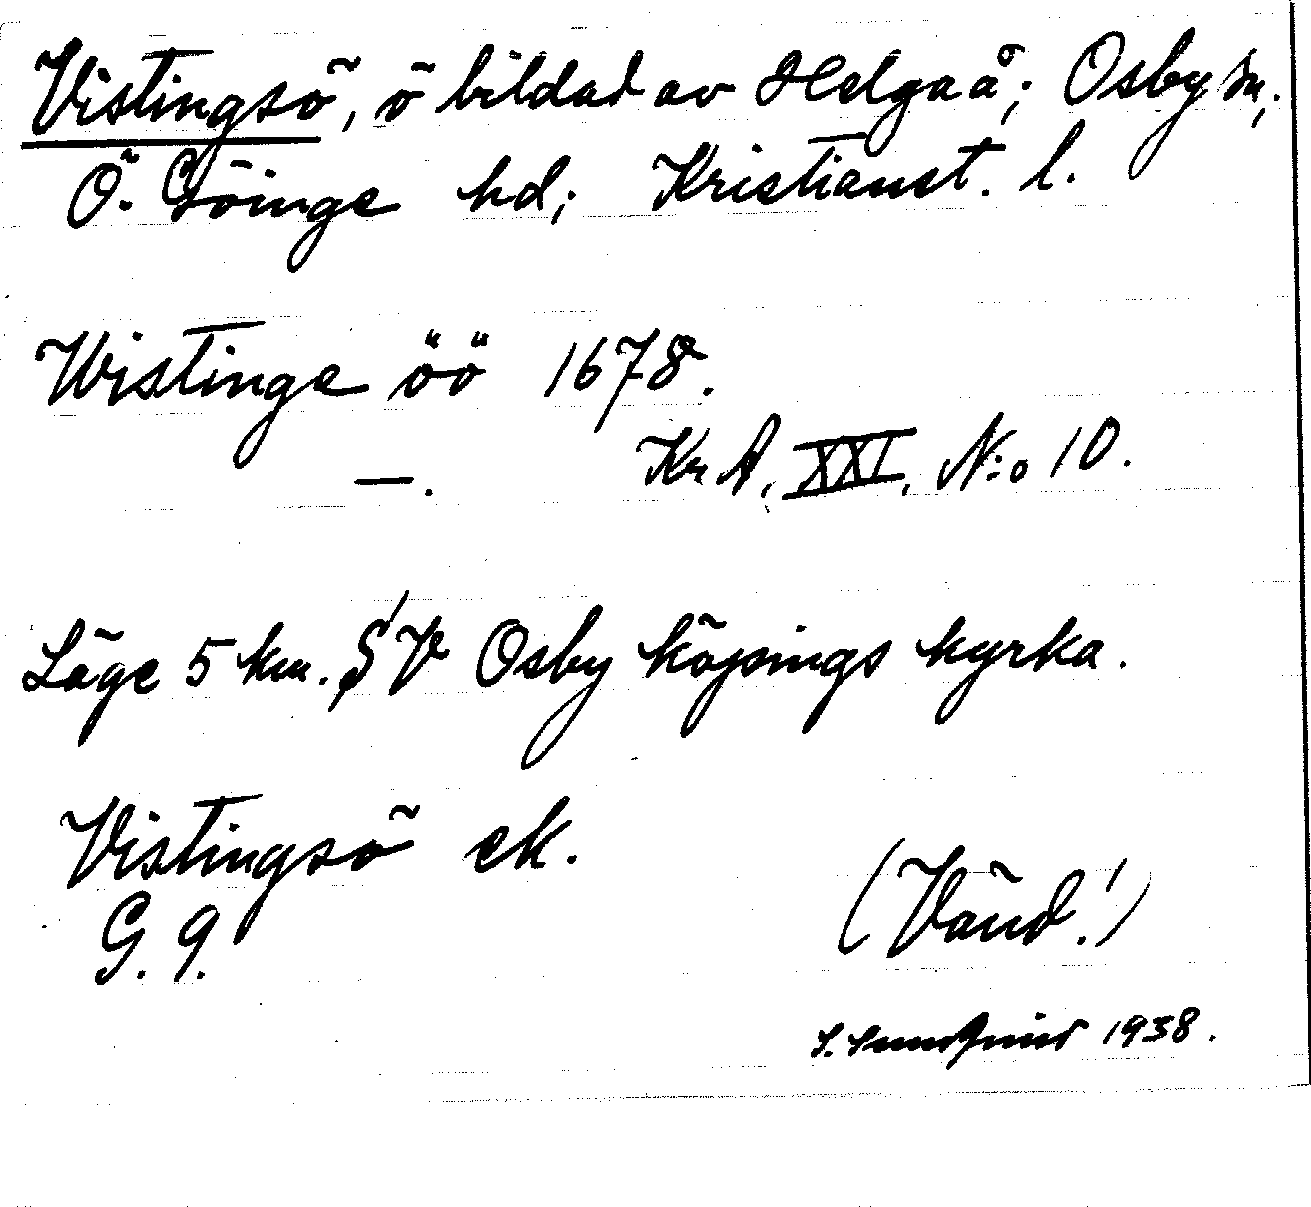 Vistingsö, ö bildad av Helgaå; Osby sn,
Ö. Göinge hd; Kristianst. l.
Wistinge öö 1678.
—. Kr A, XXI, N:o 10.
Läge 5 km. SV Osby köpings kyrka.
Vistingsö ek.
G. 9.
(Vänd!)
S. 1938.